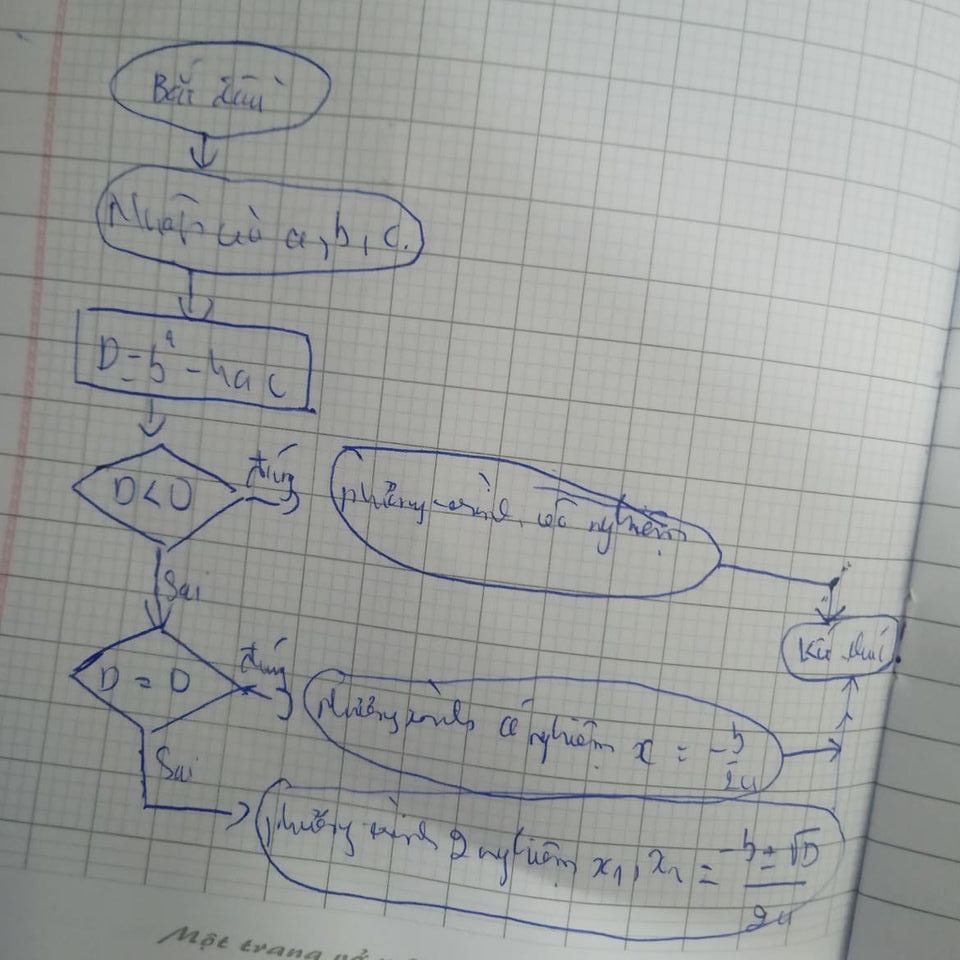 Bắt đầu
Nhập và a, b, c.
D = b² - 4ac
D < 0
đúng
phương trình vô nghiệm
Sai
Kết thúc
D = 0
đúng
phương trình có nghiệm x = -b/2a
Sai
phương trình 2 nghiệm x₁, x₂ = -b ± √D / 2a
Một trang